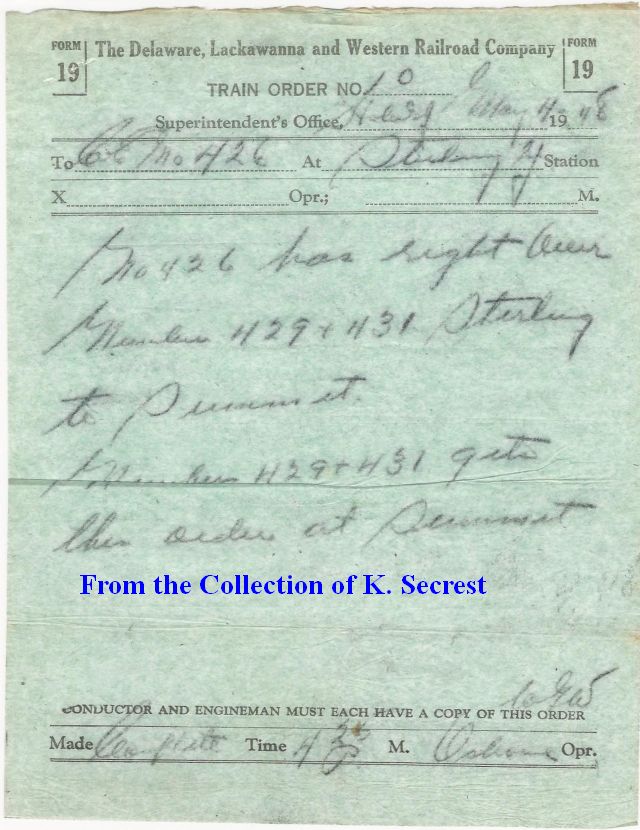 FORM 19 The Delaware, Lackawanna and Western Railroad Company FORM 19
TRAIN ORDER NO. 10
Superintendent's Office, May 4 1948
To C&E No 426 At Sterling Station
X Opr.; M.
No 426 has right Over
Numbers 429 + 431 Sterling
to Summit.
Numbers 429 + 431 gets
this order at Summit
From the Collection of K. Secrest
CONDUCTOR AND ENGINEMAN MUST EACH HAVE A COPY OF THIS ORDER
Made Complete Time M. Osborne Opr.